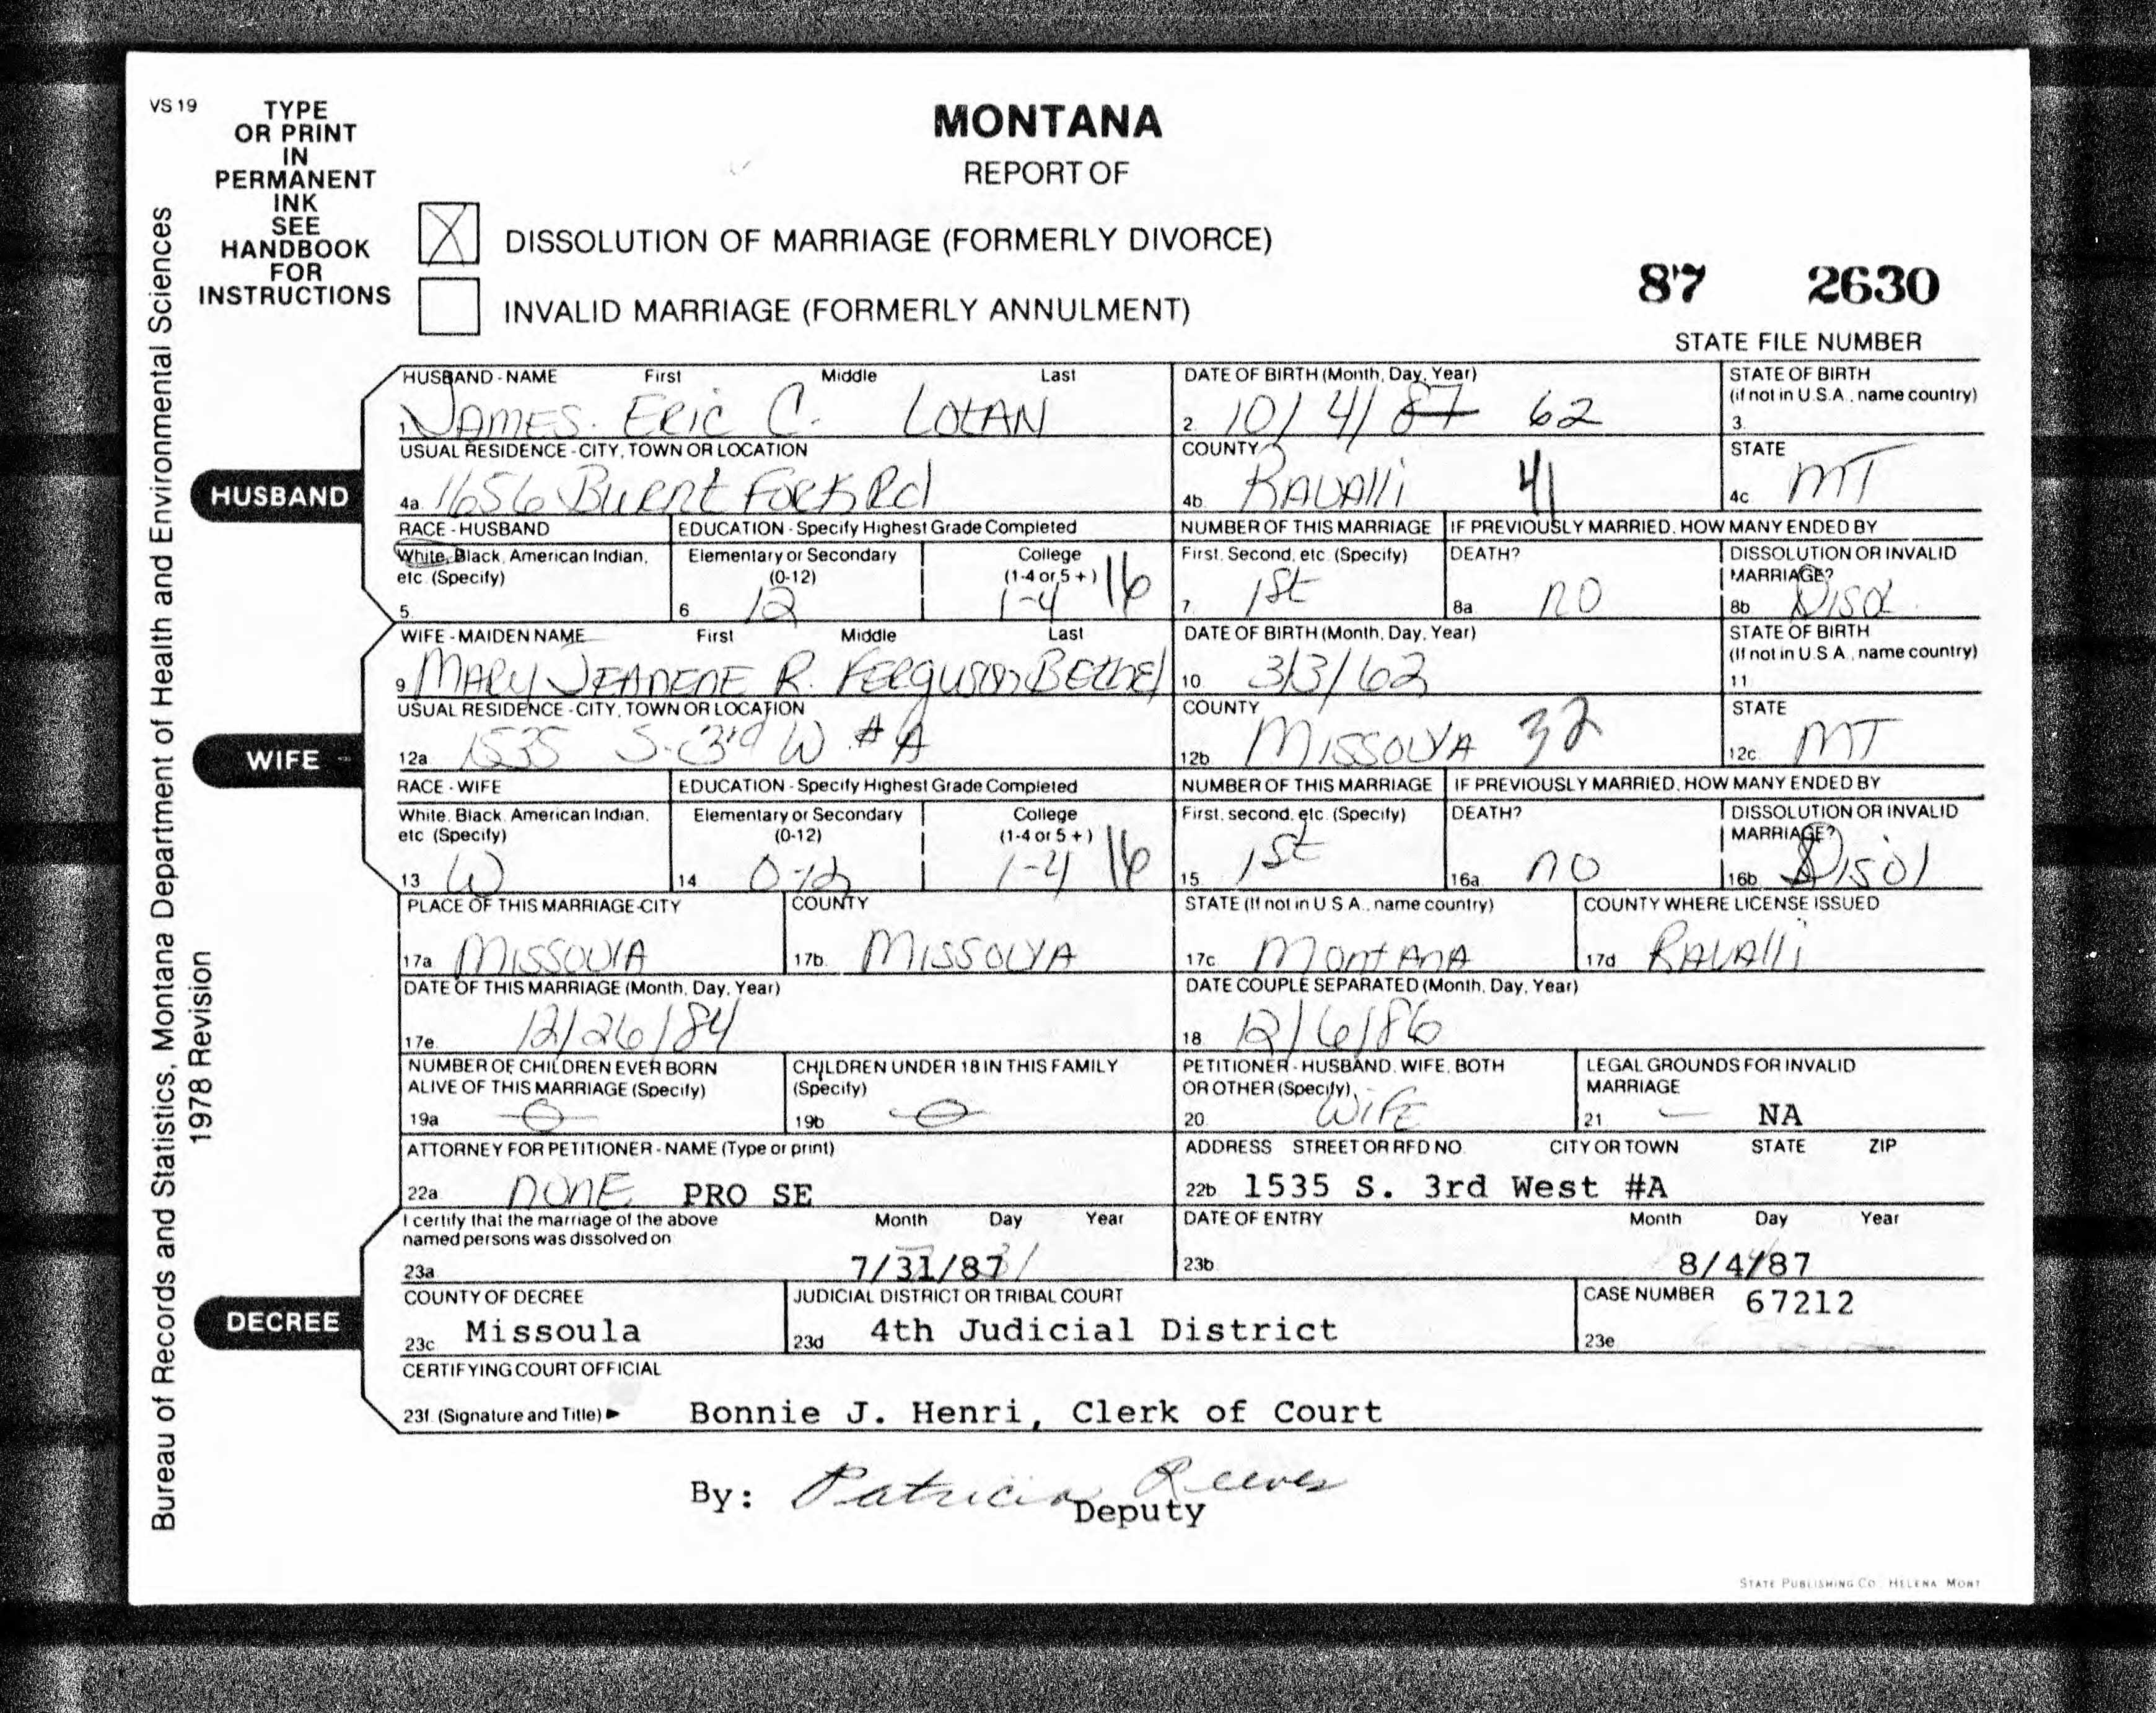 VS 19
TYPE
OR PRINT
IN
PERMANENT
INK
SEE
HANDBOOK
FOR
INSTRUCTIONS
Bureau of Records and Statistics, Montana Department of Health and Environmental Sciences
1978 Revision
MONTANA
REPORT OF
X DISSOLUTION OF MARRIAGE (FORMERLY DIVORCE)
INVALID MARRIAGE (FORMERLY ANNULMENT)
87 2630
STATE FILE NUMBER
HUSBAND
HUSBAND - NAME First Middle Last
1. JAMES. ERIC C.
DATE OF BIRTH (Month, Day, Year)
2. 10/4/87 62
STATE OF BIRTH
(if not in U.S.A., name country)
3.
USUAL RESIDENCE - CITY, TOWN OR LOCATION
4a. 1656 Burnt Fork Rd
COUNTY
4b. RAVAlli 41
STATE
4c. MT
RACE - HUSBAND
White, Black, American Indian,
etc. (Specify)
5.
EDUCATION - Specify Highest Grade Completed
Elementary or Secondary
(0-12)
6 12
College
(1-4 or 5+)
1-4 16
NUMBER OF THIS MARRIAGE
First, Second, etc. (Specify)
7. 1st
IF PREVIOUSLY MARRIED, HOW MANY ENDED BY
DEATH?
8a. NO
DISSOLUTION OR INVALID
MARRIAGE?
8b.
WIFE
WIFE - MAIDEN NAME First Middle Last
9. MARY JEANENE R. FERGUSON BETHEl
DATE OF BIRTH (Month, Day, Year)
10. 3/3/62
STATE OF BIRTH
(If not in U.S.A., name country)
11.
USUAL RESIDENCE - CITY, TOWN OR LOCATION
12a. 1535 S. 3rd W # A
COUNTY
12b. MISSOULA 32
STATE
12c. MT
RACE - WIFE
White, Black, American Indian,
etc. (Specify)
13 W
EDUCATION - Specify Highest Grade Completed
Elementary or Secondary
(0-12)
14 0-12
College
(1-4 or 5+)
1-4 16
NUMBER OF THIS MARRIAGE
First, second, etc. (Specify)
15. 1st
IF PREVIOUSLY MARRIED, HOW MANY ENDED BY
DEATH?
16a. NO
DISSOLUTION OR INVALID
MARRIAGE?
16b. Disol
PLACE OF THIS MARRIAGE-CITY
17a. MISSOULA
COUNTY
17b. MISSOULA
STATE (If not in U.S.A., name country)
17c. MontAnA
COUNTY WHERE LICENSE ISSUED
17d. RAVAlli
DATE OF THIS MARRIAGE (Month, Day, Year)
17e. 12/26/84
DATE COUPLE SEPARATED (Month, Day, Year)
18. 12/6/86
NUMBER OF CHILDREN EVER BORN
ALIVE OF THIS MARRIAGE (Specify)
19a. 0
CHILDREN UNDER 18 IN THIS FAMILY
(Specify)
19b. 0
PETITIONER - HUSBAND, WIFE, BOTH
OR OTHER (Specify)
20. WIFE
LEGAL GROUNDS FOR INVALID
MARRIAGE
21. — NA
ATTORNEY FOR PETITIONER - NAME (Type or print)
22a. NONE PRO SE
ADDRESS STREET OR RFD NO. CITY OR TOWN STATE ZIP
22b. 1535 S. 3rd West #A
DECREE
I certify that the marriage of the above
named persons was dissolved on
Month Day Year
23a. 7/31/87
DATE OF ENTRY Month Day Year
23b. 8/4/87
COUNTY OF DECREE
23c. Missoula
JUDICIAL DISTRICT OR TRIBAL COURT
23d. 4th Judicial District
CASE NUMBER 67212
23e.
CERTIFYING COURT OFFICIAL
23f. (Signature and Title) ► Bonnie J. Henri, Clerk of Court
By: Patricia Reeves
Deputy
STATE PUBLISHING CO. HELENA MONT